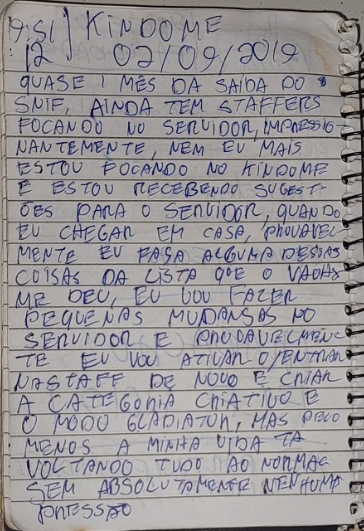 9:51] KINDOME
12 02/09/2019
QUASE 1 MÊS DA SAIDA DO
SNIF, AINDA TEM STAFFERS
FOCANDO NO SERVIDOR, IMPRESSIO
NANTEMENTE, NEM EU MAIS
ESTOU FOCANDO NO KINDOME
E ESTOU RECEBENDO SUGEST-
ÕES PARA O SERVIDOR, QUANDO
EU CHEGAR EM CASA, PROVAVEL-
MENTE EU FAÇA ALGUMA DESSAS
COISAS DA LISTA QUE O
ME DEU, EU VOU FAZER
PEQUENAS MUDANSAS NO
SERVIDOR E PROVAVELMENC
TE EU VOU ATIVAR O /ENTRAR
NA STAFF DE NOVO E CRIAR
A CATEGORIA CRIATIVO E
O MODO GLADIATOR, MAS PELO
MENOS A MINHA VIDA TA
VOLTANDO TUDO AO NORMAL
SEM ABSOLUTAMENTE NENHUMA
PRESSÃO